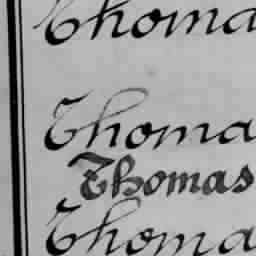 Thoma
Thoma
Thomas
Thoma